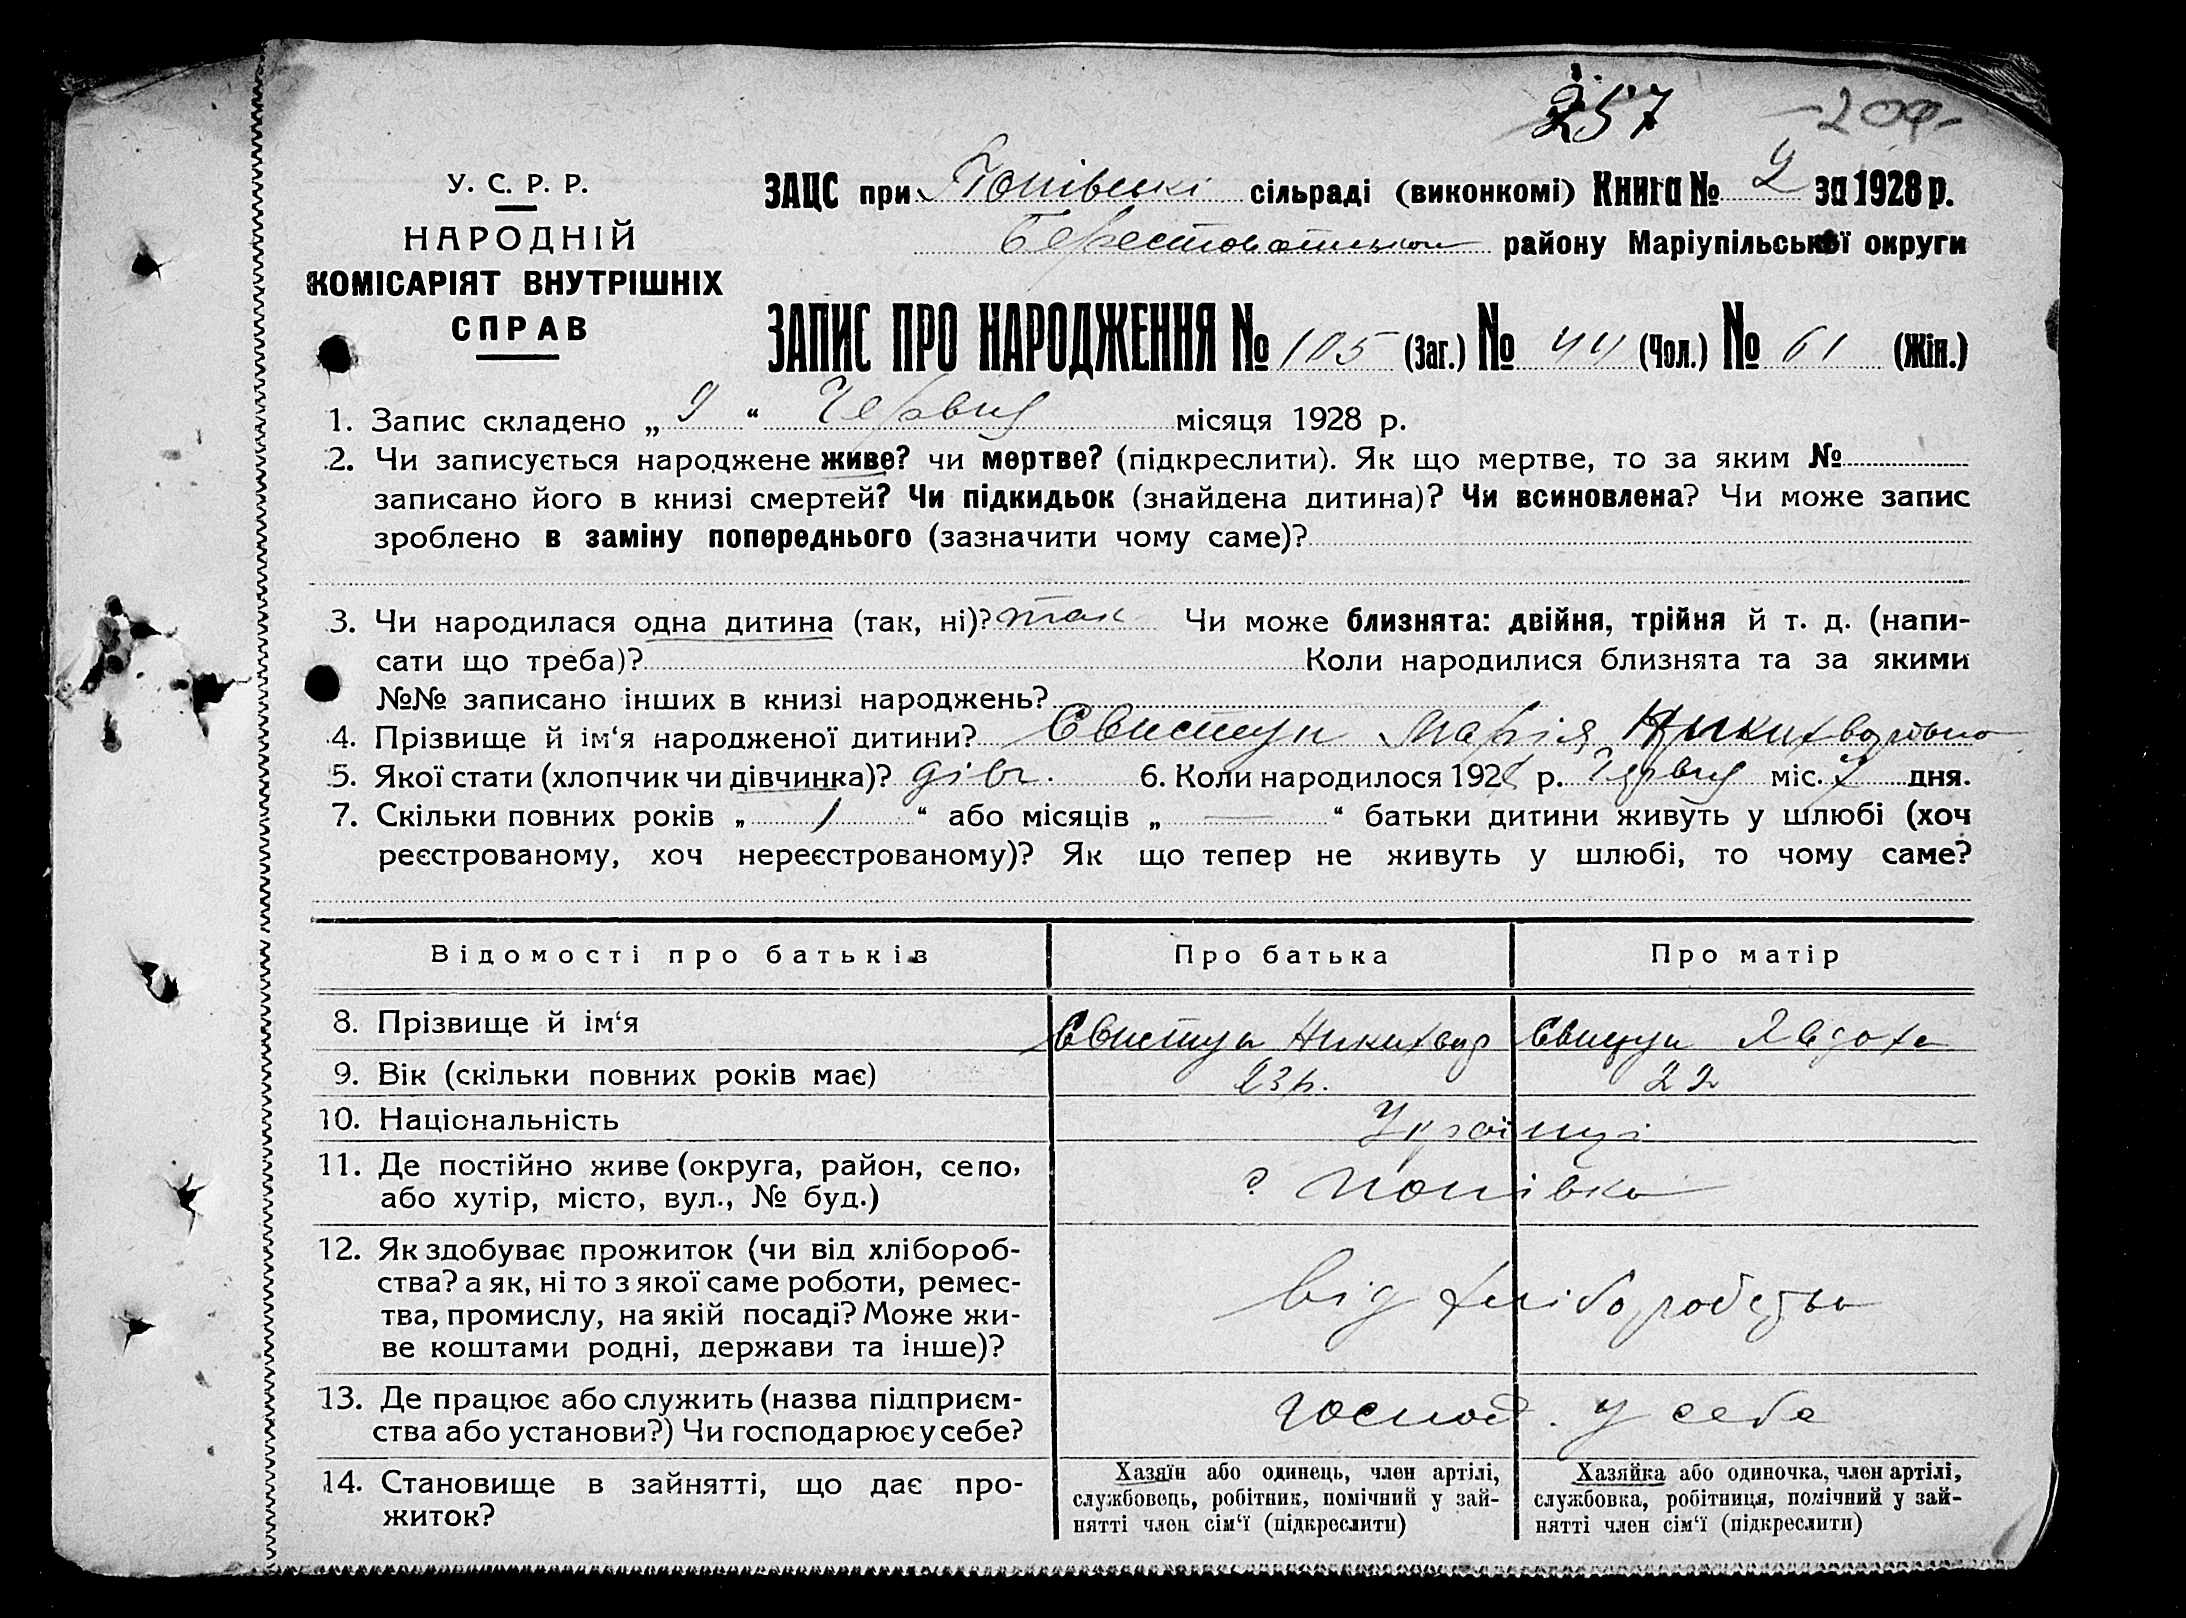 257 -209-
У. С. Р. Р.
НАРОДНІЙ
КОМІСАРІЯТ ВНУТРІШНІХ
СПРАВ
ЗАЦС при Попівські сільраді (виконкомі) Книга № 2 за 1928 р.
Берестоватського району Маріупільської округи
ЗАПИС ПРО НАРОДЖЕННЯ № 105 (Заг.) № 44 (Чол.) № 61 (Жін.)
1. Запис складено „ 9 “ Червня місяця 1928 р.
2. Чи записується народжене живе? чи мертве? (підкреслити). Як що мертве, то за яким №
записано його в книзі смертей? Чи підкидьок (знайдена дитина)? Чи всиновлена? Чи може запис
зроблено в заміну попереднього (зазначити чому саме)?
3. Чи народилася одна дитина (так, ні)? так Чи може близнята: двійня, трійня й т. д. (напи-
сати що треба)? Коли народилися близнята та за якими
№№ записано інших в книзі народжень?
4. Прізвище й ім‘я народженої дитини? Свистун Марія
5. Якої стати (хлопчик чи дівчинка)? дівч. 6. Коли народилося 1928 р. Червня міс. 7 дня.
7. Скільки повних років „ 1 “ або місяців „ — “ батьки дитини живуть у шлюбі (хоч
реєстрованому, хоч нереєстрованому)? Як що тепер не живуть у шлюбі, то чому саме?
Відомості про батьків Про батька Про матір
8. Прізвище й ім‘я Свистун Никихвор Свищун Явдоха
9. Вік (скільки повних років має) 23 р. 22
10. Національність Українці
11. Де постійно живе (округа, район, село,
або хутір, місто, вул., № буд.) с Попівка
12. Як здобуває прожиток (чи від хлібороб-
ства? а як, ні то з якої саме роботи, ремес-
тва, промислу, на якій посаді? Може жи-
ве коштами родні, держави та інше)? від хліборобства
13. Де працює або служить (назва підприєм-
ства або установи?) Чи господарює у себе? господ. у себе
14. Становище в зайнятті, що дає про-
житок?
Хазяїн або одинець, член артілі,
службовець, робітник, помічний у зай-
нятті член сім‘ї (підкреслити)
Хазяйка або одиночка, член артілі,
службовка, робітниця, помічний у зай-
нятті член сім‘ї (підкреслити)